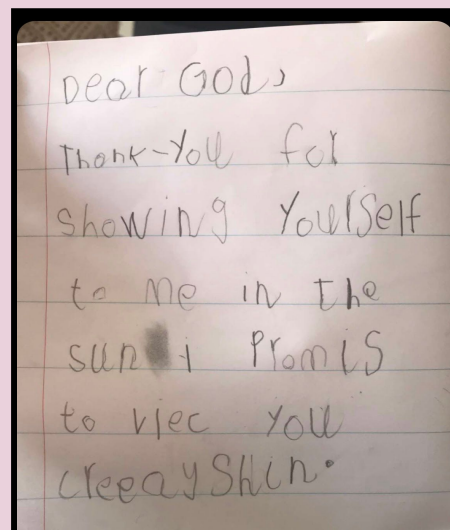 Dear God,
Thank-You for
showing YourSelf
to me in the
sun i PromiS
to viec you
creeayShin.